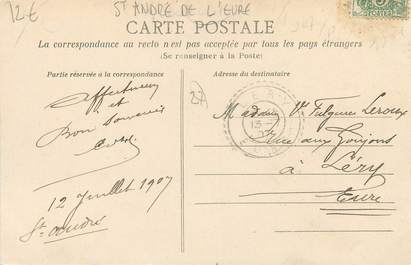 12€
ST ANDRÉ DE L'EURE
27
CARTE POSTALE
La correspondance au recto n'est pas acceptée par tous les pays étrangers
(Se renseigner à la Poste)
Partie réservée à la correspondance
Adresse du destinataire
Affectueux
et
Bon souvenir
12 Juillet 1907
St André
27
LERY
13
Madame Vve Fulgence Leroux
Rue aux Goujons
à Léry
Eure